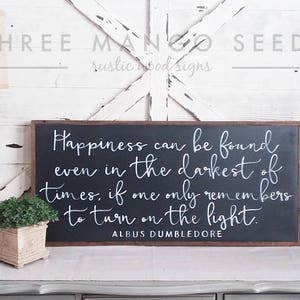 THREE MANGO SEEDS
rustic wood signs
Happiness can be found
even in the darkest of
times, if one only remembers
to turn on the light.
ALBUS DUMBLEDORE